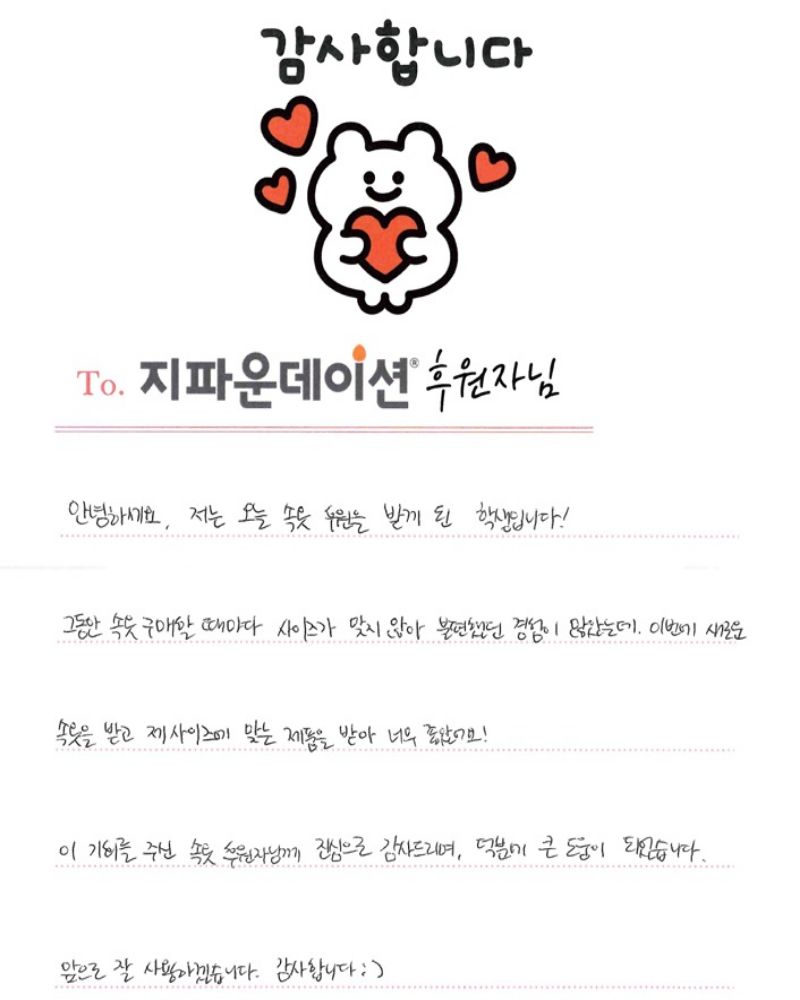 감사합니다
To. 지파운데이션® 후원자님
안녕하세요, 저는 오늘 속옷 후원을 받게 된 학생입니다!
그동안 속옷 구매할 때마다 사이즈가 맞지 않아 불편했던 경험이 많았는데, 이번에 새로운
속옷을 받고 제 사이즈에 맞는 제품을 받아 너무 좋았어요!
이 기회를 주신 속옷 후원자님께 진심으로 감사드리며, 덕분에 큰 도움이 되었습니다.
앞으로 잘 사용하겠습니다. 감사합니다 :)